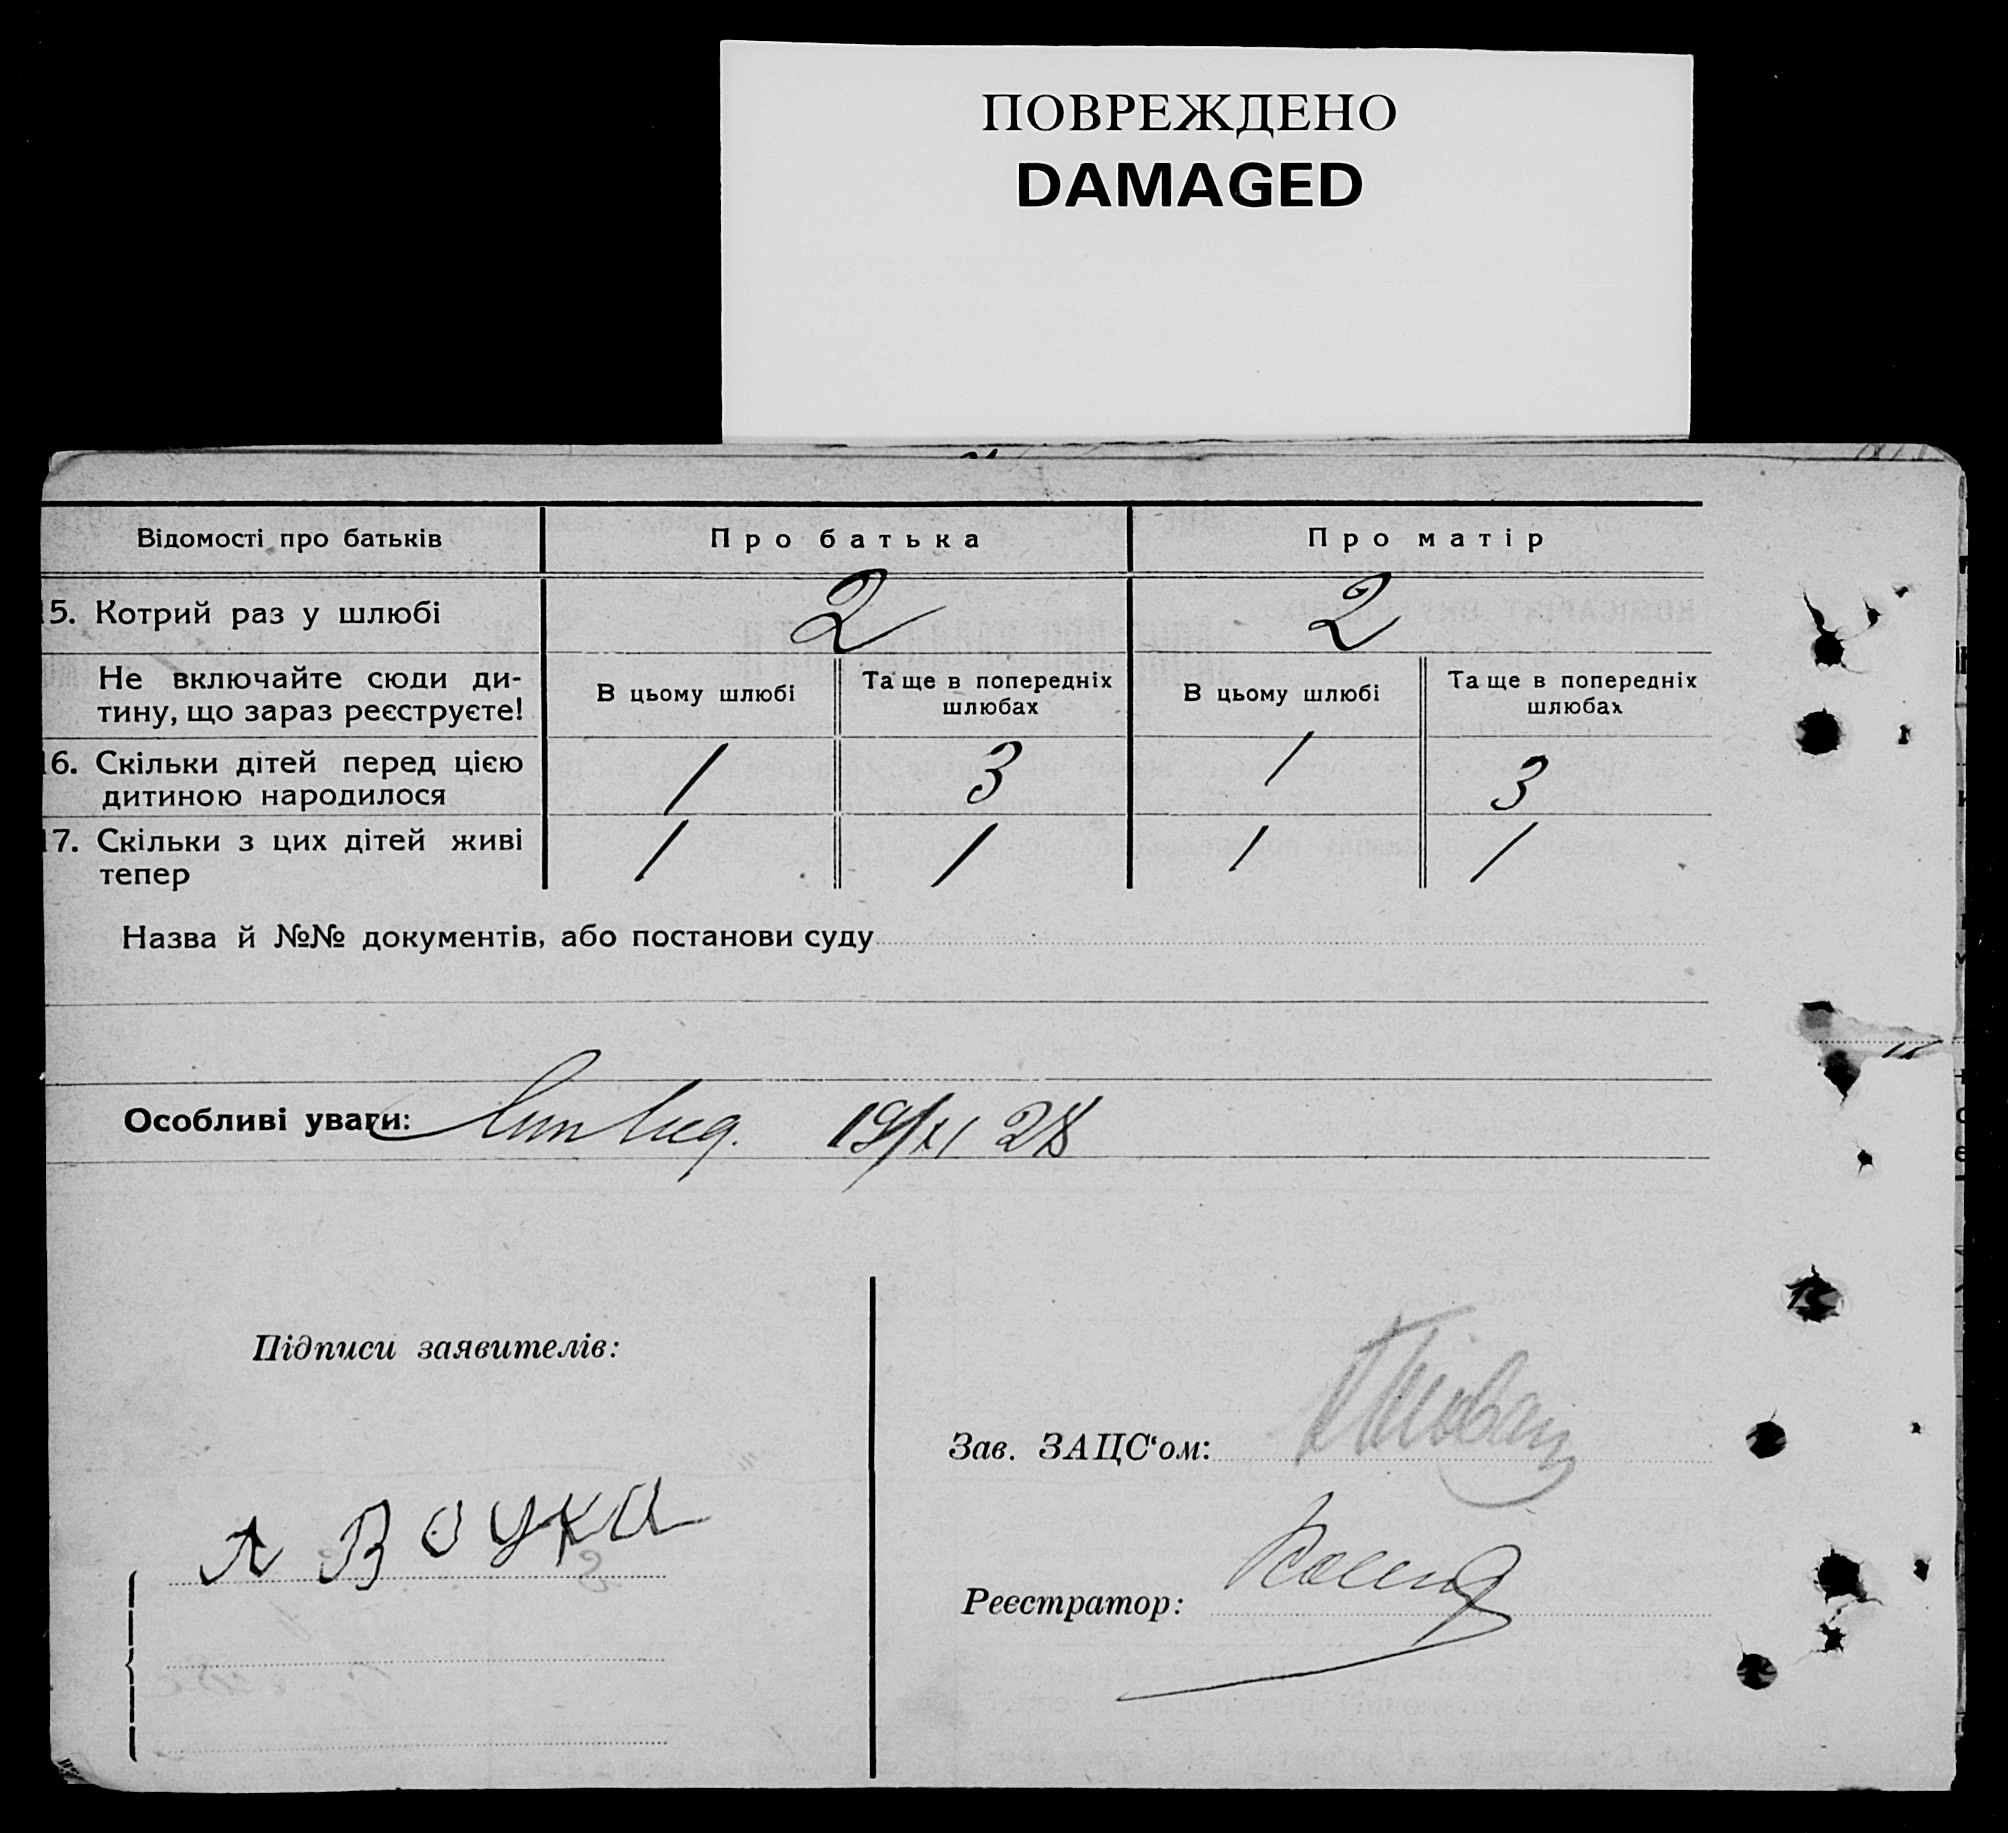 ПОВРЕЖДЕНО
DAMAGED
Відомості про батьків
Про батька
Про матір
15. Котрий раз у шлюбі
2
2
Не включайте сюди ди-
тину, що зараз реєструєте!
В цьому шлюбі
Та ще в попередніх
шлюбах
В цьому шлюбі
Та ще в попередніх
шлюбах
16. Скільки дітей перед цією
дитиною народилося
1
3
1
3
17. Скільки з цих дітей живі
тепер
1
1
1
1
Назва й №№ документів, або постанови суду
Особливі уваги: 19/XI 28
Підписи заявителів:
Зав. ЗАЦС‘ом:
Реєстратор: